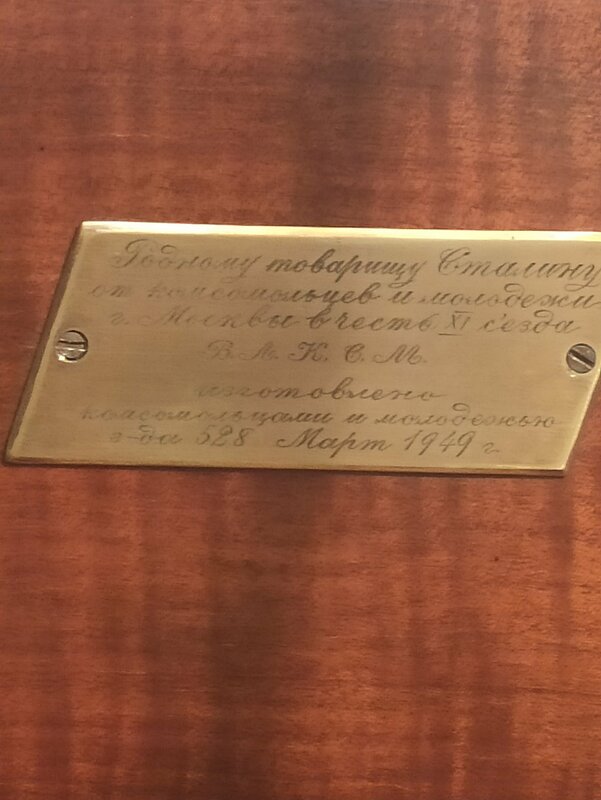 Родному товарищу Сталину
от комсомольцев и молодежи
г. Москвы в честь XI с'езда
В. Л. К. С. М.
изготовлено
комсомольцами и молодежью
з-да 528 Март 1949 г.